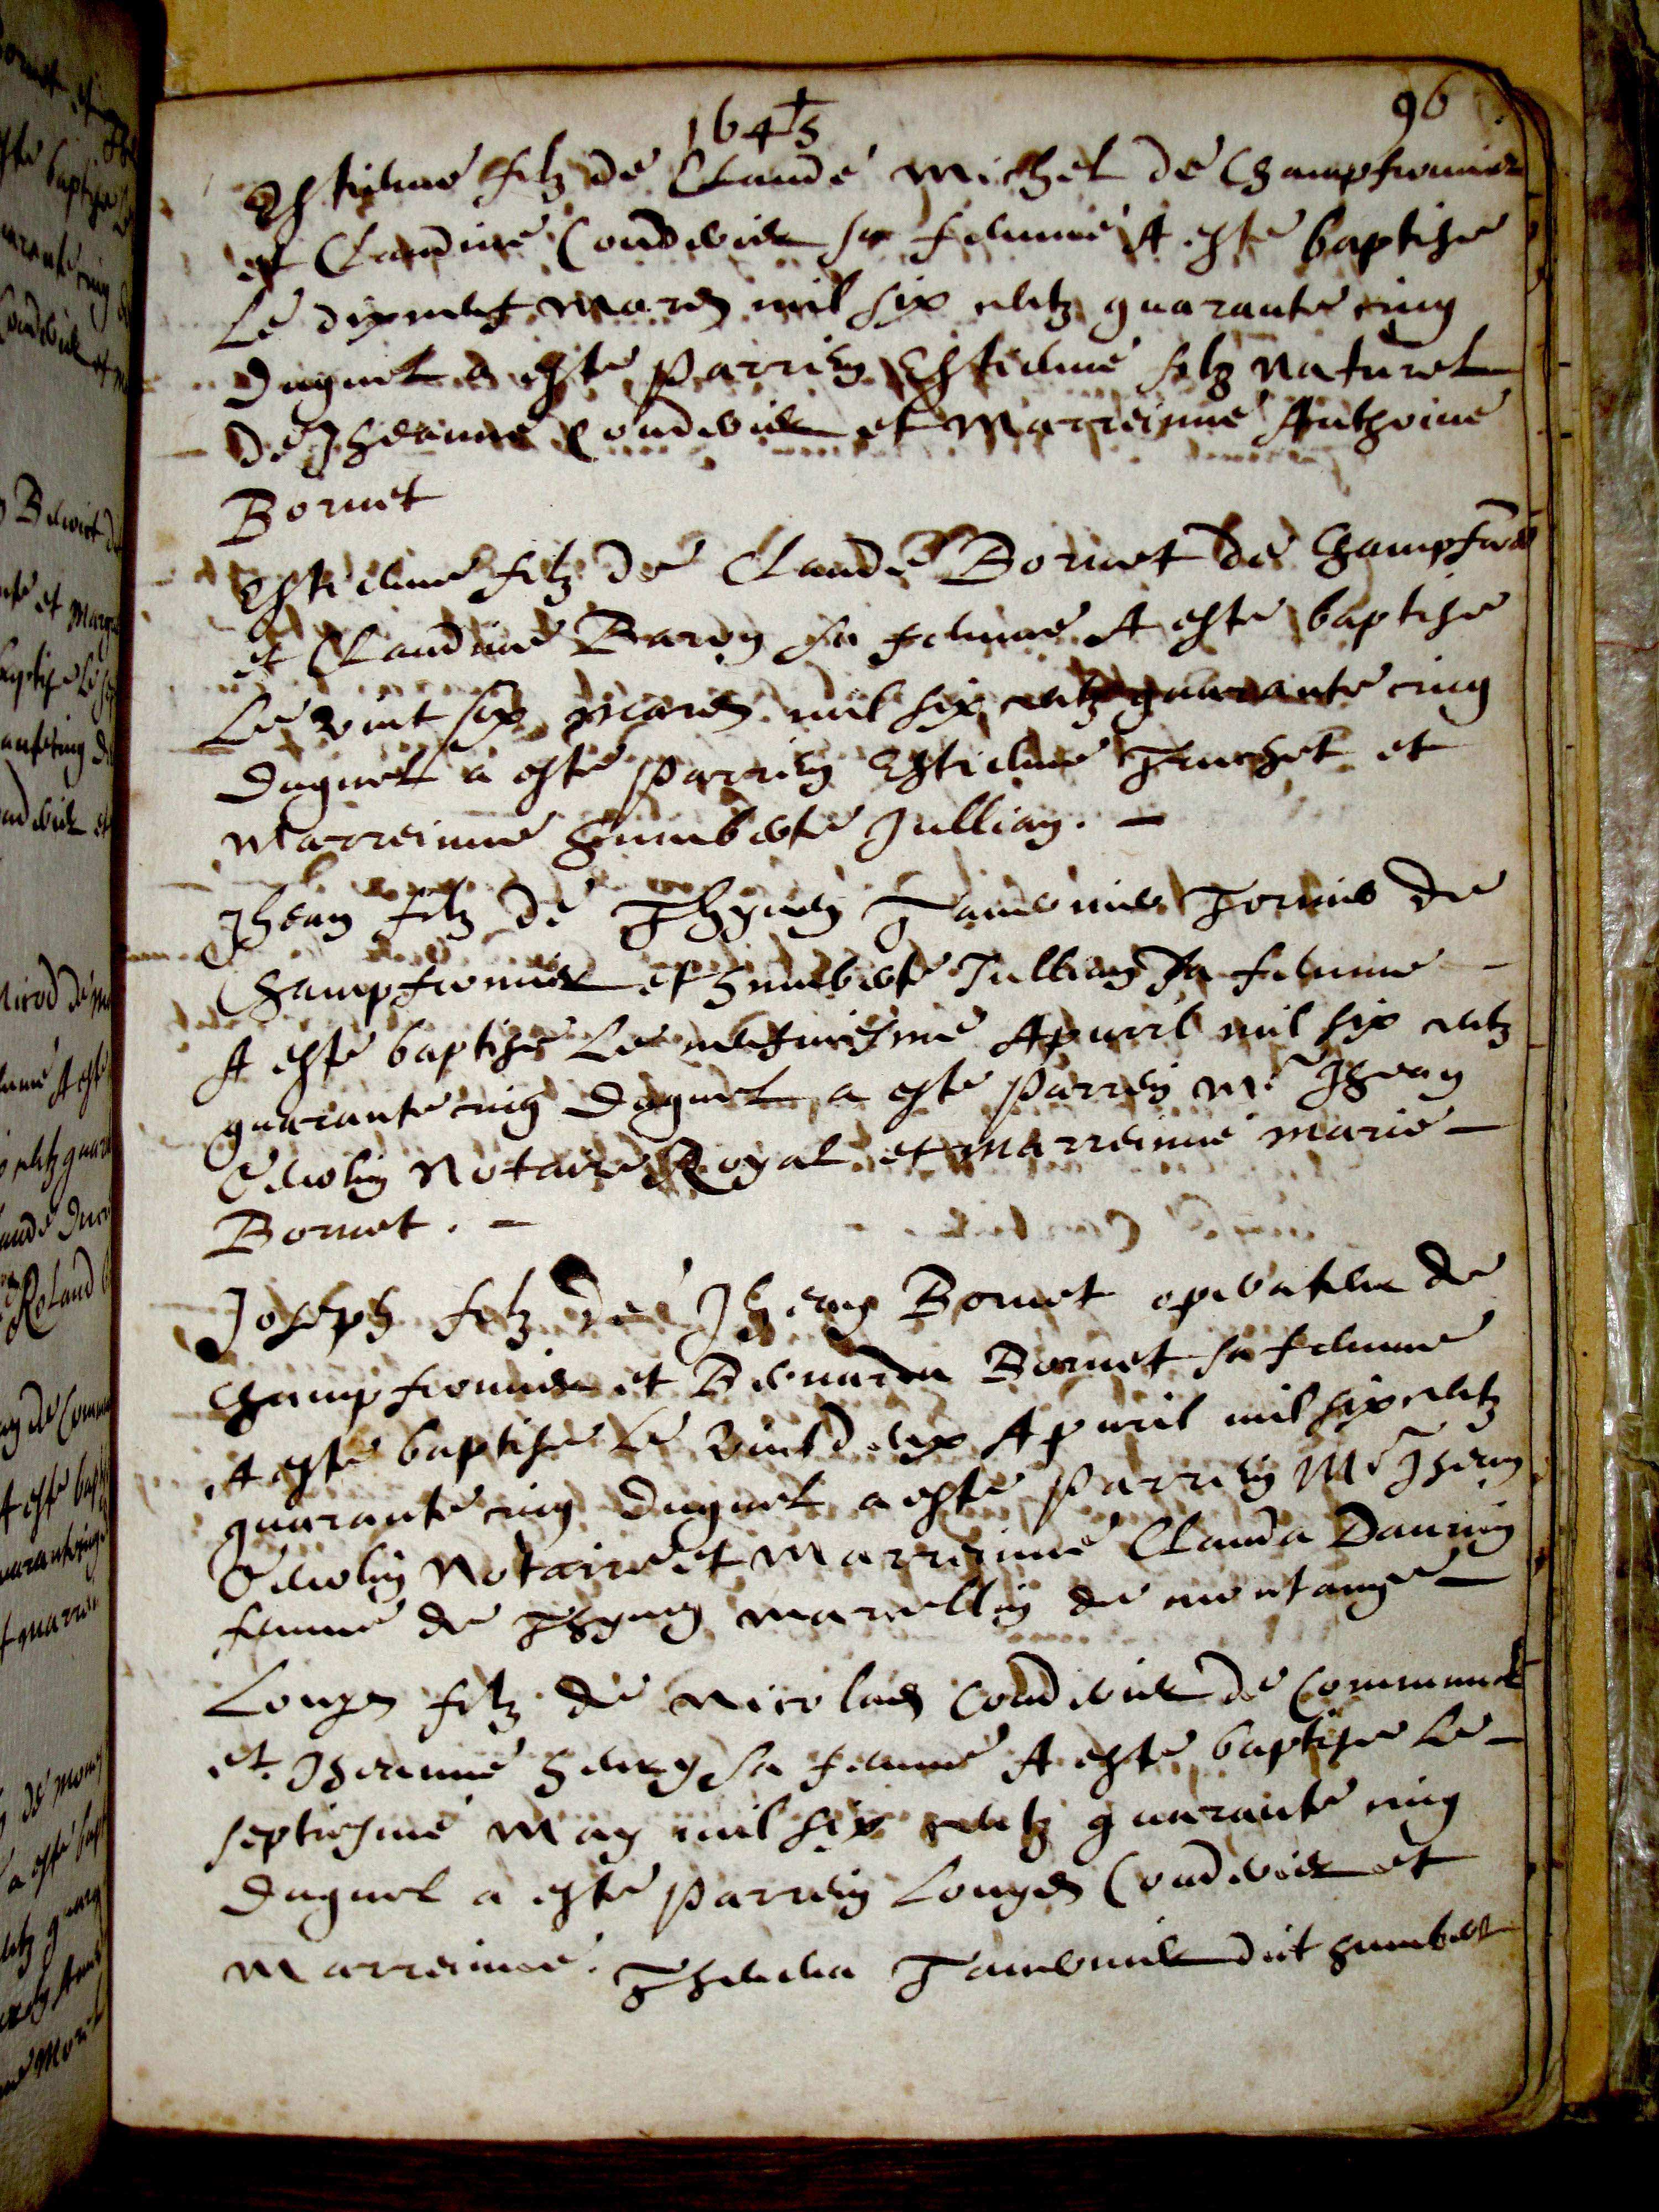 1645
96
Estienne filz de Claude Michel de Champfromier
et Claudine Coudurier sa femme A este baptise
Le dixneuf Mars mil six centz quarante cinq
Duquel a este Parrein Estienne filz naturel
De Jheanne Coudurier et Marreinne Anthoine
Bornet
Estienne filz de Claude Bornet de Champfro
et Claudine Baron sa femme A este baptise
Le vint six Mars mil six centz quarante cinq
Duquel a este Parrein Estienne Truchet et
Marreinne Humberte Jullian. -
Jhean filz de Thyven Tavernier Tornier de
Champfromier et Humberte Jullian sa femme -
A este baptise Le neufuiesme Apuril mil six centz
quarante cinq Duquel a este Parrein Me Jhean
Genolin Notaire Royal et Marreinne Marie -
Bornet. -
Joseph filz de Jhean Bornet operateur de
Champfromier et Bernarda Bornet sa femme
A este baptise Le vint deux Apuril mil six centz
quarante cinq Duquel a este Parrein Me Jhean
Genolin Notaire et Marreinne Clauda Dancin
femme de Thyven Marcellin de montange -
Louys filz de Nicolas Coudurier de Communal
et Jheanne Henry sa femme A este baptise Le -
septiesme May mil six centz quarante cinq
Duquel a este Parrein Louys Coudurier et
Marreinne Thevena Tavernier dit humbert